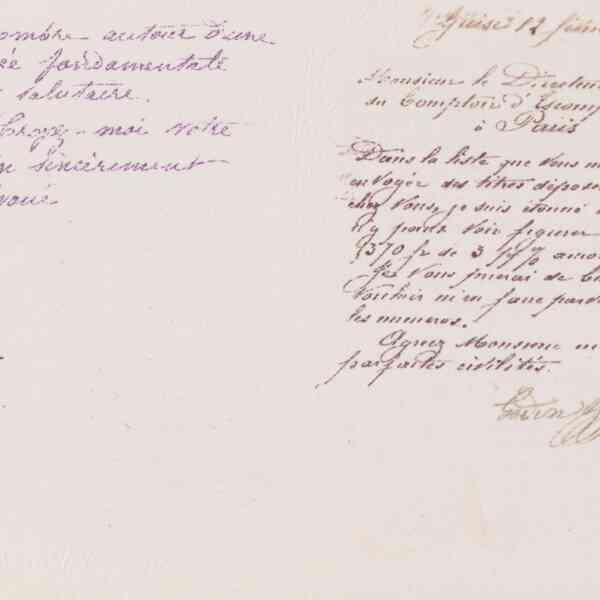 autour d'une
fondamentale
salutaire.
moi votre
sincèrement
Guise 12
Monsieur le Directeur
du Comptoir d'Escomp
à Paris
Dans la liste que vous m
envoyée des titres déposé
chez vous, je suis étonné
n'y point voir figurer
370 fr de 3 % amor
Je vous prierai de
vouloir m'en faire
les numéros.
Agréez Monsieur
parfaites civilités.
Godin